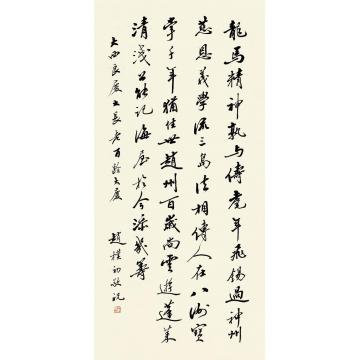 龍馬精神孰与儔耄年飛錫過神州
慈恩義學流三島法相傳人在八洲寶
掌千年猶住世趙州百歲尚雲遊蓬萊
清淺公能記海屋於今添幾籌
大西良慶大長老百齡大慶 趙樸初敬祝